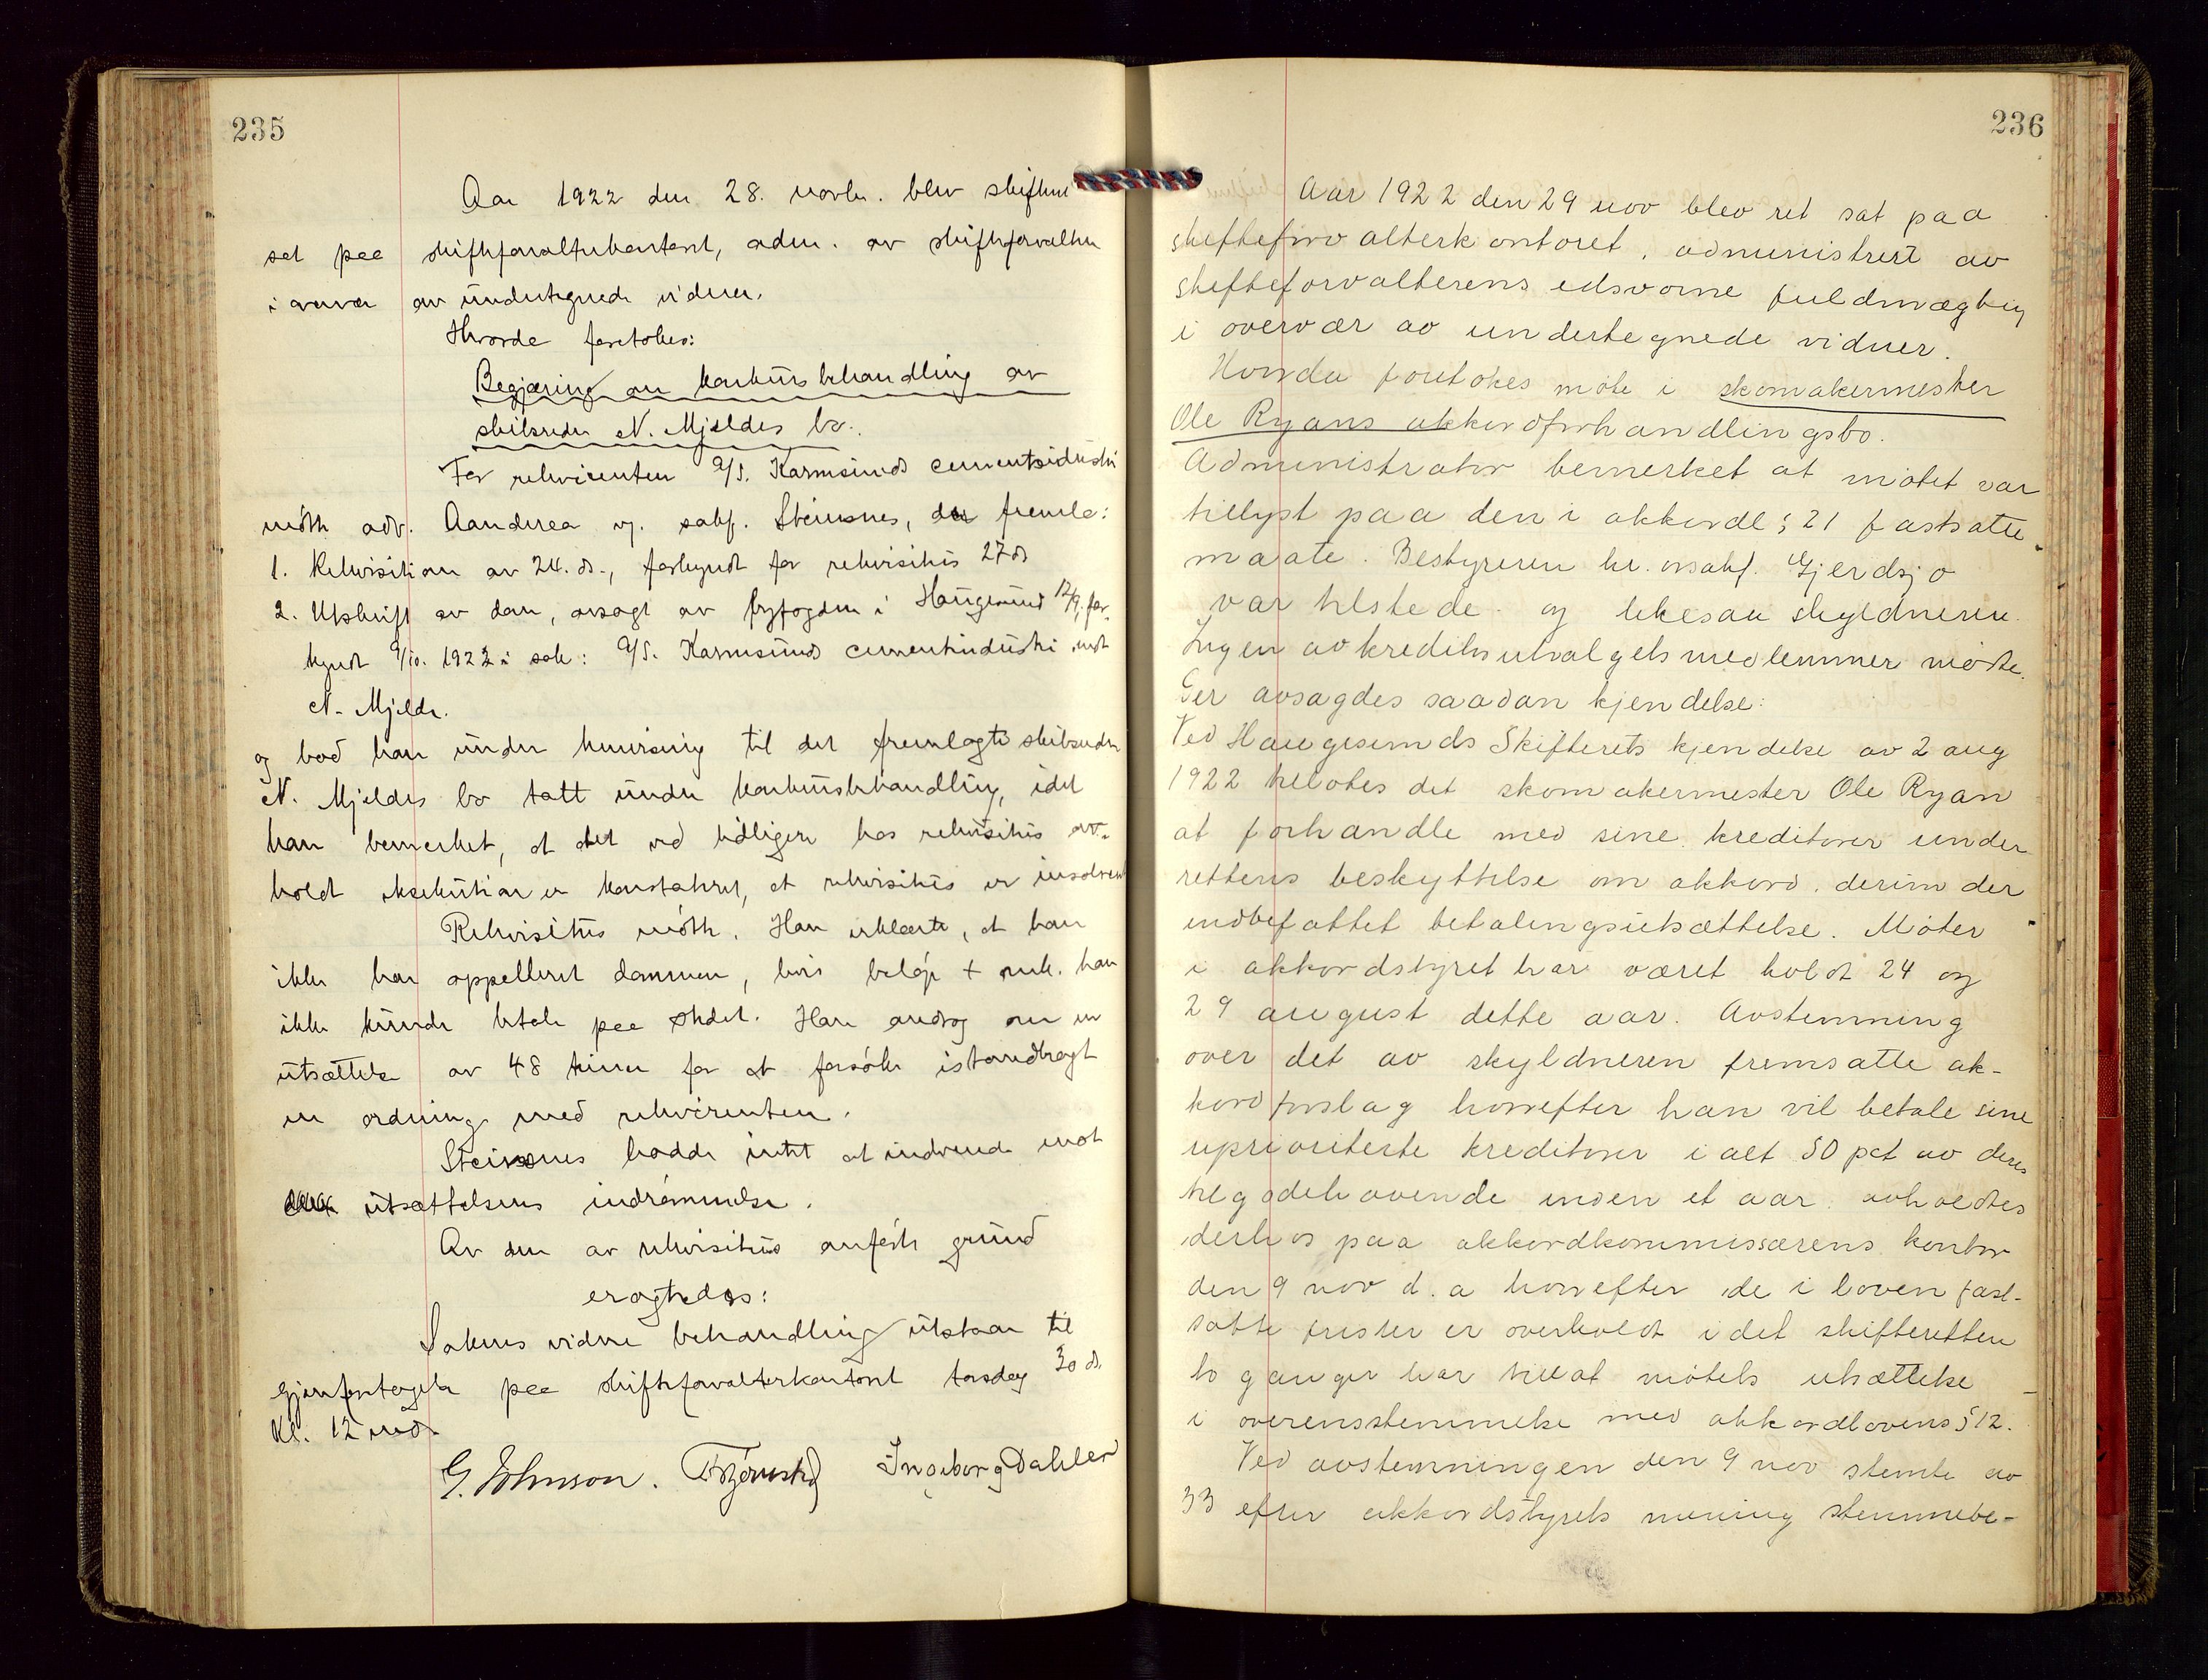 235
Aar 1922 den 28. novbr. blev skifteret
sat paa skifteforvalterkontoret, adm. av skifteforvalteren
i overvær av undertegnede vidner.
Hvorda foretokes:
Begjæring om konkursbehandling av
skibsreder N. Mjeldes bo.
For rekvirenten A/S. Karmsunds cementindustri
møtte adv. Aanderaa v. sakf. Steinsnes, der fremla:
1. Rekvisition av 24. ds., forkyndt for rekvisitus 27 ds
2. Utskrift av dom, avsagt av byfogden i Haugesund 12/9, for-
kyndt 9/10. 1922 i sak: A/S. Karmsunds cementindustri mot
N. Mjelde.
og bad han under henvisning til det fremlagte skibsreder
N. Mjeldes bo tatt under konkursbehandling, idet
han bemerket, at det ved tidligere hos rekvisitus av-
holdt eksekution er konstatert, at rekvisitus er insolvent
Rekvisitus møtte. Han erklærte, at han
ikke har appelleret dommen, hvis beløp + omk. han
ikke kunde betale paa stedet. Han androg om en
utsættelse av 48 timer for at forsøke istandbragt
en ordning med rekvirenten.
Steinsnes hadde intet at indvende mot
utsættelsens indrømmelse.
Av den av rekvisitus anførte grund
eragtedes:
Sakens videre behandling utstaar til
gjenforetagelse paa skifteforvalterkontoret torsdag 30 ds.
Kl. 12 md.
G. Johnson. Ingeborg Dahler
236
Aar 1922 den 29 nov blev ret sat paa
skifteforvalterkontoret, administrert av
skifteforvalterens edsvorne fuldmægtig
i overvær av undertegnede vidner.
Hvorda foretokes møte i skomakermester
Ole Ryans akkordforhandlingsbo.
Administrator bemerket at møtet var
tillyst paa den i akkordl § 21 fastsatte
maate. Bestyreren hr. orsakf. Gjerdsjø
var tilstede og likesaa skyldneren.
Ingen av kreditorutvalgets medlemmer møtte.
Der avsagdes saadan kjendelse:
Ved Haugesunds Skifterets kjendelse av 2 aug
1922 tillotes det skomakermester Ole Ryan
at forhandle med sine kreditorer under
rettens beskyttelse om akkord, derunder
indbefattet betalingsutsættelse. Møter
i akkordstyret har været holdt 24 og
29 august dette aar. Avstemning
over det av skyldneren fremsatte ak-
kordforslag hvorefter han vil betale sine
uprioriterte kreditorer ialt 50 pct av deres
tilgodehavende inden et aar avholdtes
derhos paa akkordkommissærens kontor
den 9 nov d. a hvorefter de i loven fast-
satte frister er overholdt idet skifteretten
to ganger har tillat møtets utsættelse
i overensstemmelse med akkordlovens § 12.
Ved avstemningen den 9 nov stemte av
33 efter akkordstyrets mening stemmebe-